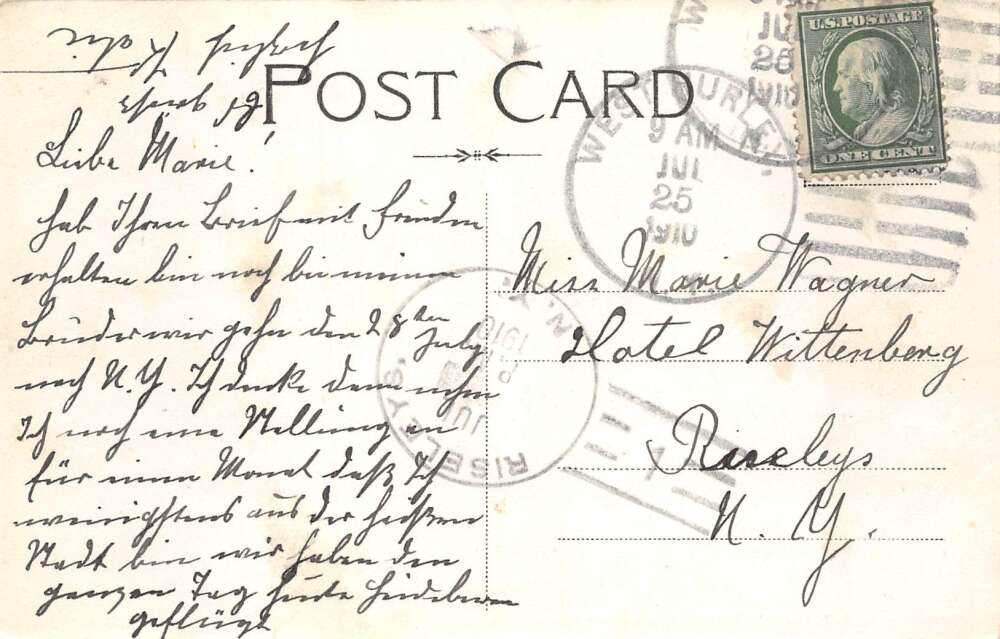 POST CARD
U.S. POSTAGE
ONE CENT
WEST HURLEY, N.Y.
9 AM
JUL
25
1910
RISELEYS, N.Y.
JUL
1910
1
Liebe Marie!
hab Ihren Brief mit Freuden
erhalten bin noch bei meinem
Bruder wir gehn den 28ten July
nach N.Y. Ich denke dann nehm
Ich noch eine Stellung an
für einen Monat daß Ich
wenigstens aus der heißen
Stadt bin wir haben den
ganzen Tag heute Heidebeeren
gepflügt
Miss Marie Wagner
Hotel Wittenberg
Riseleys
N. Y.